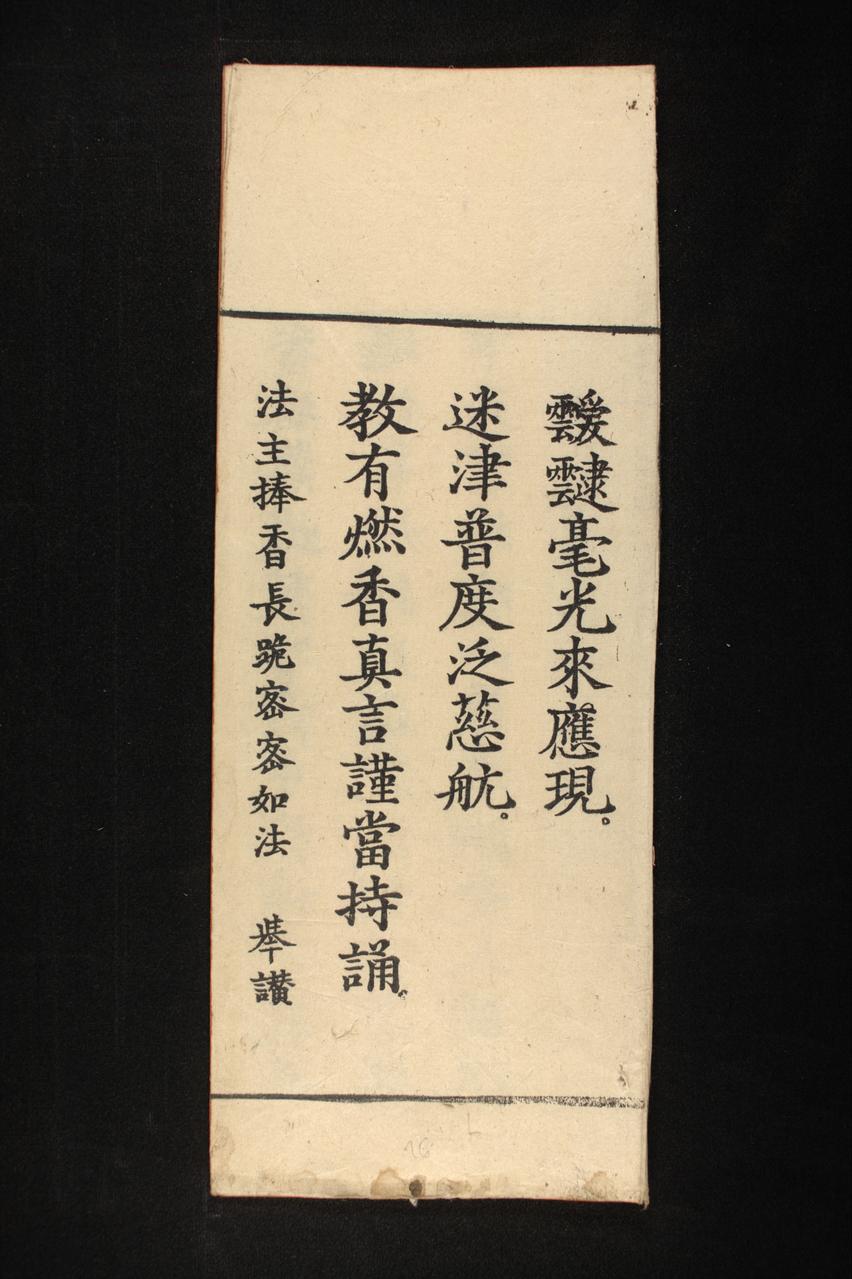 靉靆毫光來應現。
迷津普度泛慈航。
教有燃香真言謹當持誦。
法主捧香長跪密密如法 舉讃